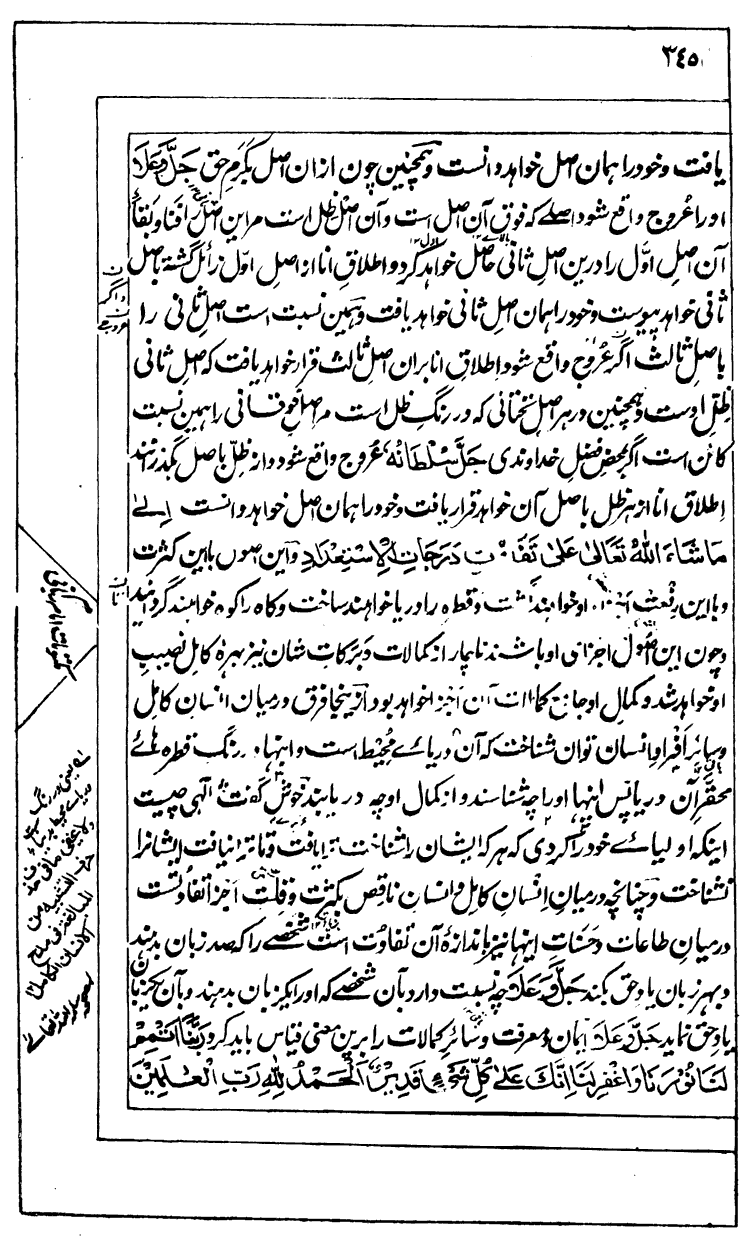 ۳۴۵
یافت و خود را همان اصل خواهد دانست و همچنین چون ازان اصل بکرم حق جَلَّ وَعَلَا
او را عُروج واقع شود اصلے که فوقِ آن اصل است و آن اصل ظل است مر این اصل را فنا و بقاءِ
آن اصلِ اوّل را درین اصلِ ثانی حاصل خواهد کرد و اطلاقِ انا از اصلِ اوّل زائل گشته باصل
ثانی خواهد پیوست و خود را همان اصلِ ثانی خواهد یافت و همین نسبت است اصلِ ثانی را
باصلِ ثالث اگر عُروج واقع شود اِطلاقِ انا بران اصلِ ثالث قرار خواهد یافت که اصلِ ثانی
ظلِّ اوست و همچنین در هر اصلِ تحتانی که در رنگِ ظل است مر اصلِ فوقانی را همین نسبت
کائن است اگر بمحضِ فضلِ خداوندی جَلَّ سُلْطَانُهٗ عُروج واقع شود و از ظلّ باصل بگذرانند
اِطلاقِ انا از هر ظل باصلِ آن خواهد قرار یافت و خود را همان اصل خواهد دانست الےٰ
مَاشَاءَ اللّٰهُ تَعَالٰى عَلٰى تَفَاوُتِ دَرَجَاتِ الْاِسْتِعْدَادِ و این اصول باین کثرت
و با این رفعت اجزای او خواهند گشت و قطره را دریا خواهند ساخت و کاه را کوه خواهند گردانید
و چون این اُصول اجزای او باشند ناچار از کمالات و بَرَکات شان نیز بهرهٔ کامل نصیبِ
او خواهد شد و کمالِ او جامعِ کمالات این اجزا خواهد بود ازینجا فرق درمیان انسانِ کامل
و سائرِ اَفرادِ انسان توان شناخت که آن دریائے مُحیط است و اینها در رنگ قطره هائے
محقّر آن دریا پس اینها او را چه شناسند و از کمالِ او چه دریابند خوش گفت الٰهی چیست
اینکه اولیائے خود را کردی که هر که ایشان را شناخت ترا یافت و تا ترا نیافت ایشانرا
نشناخت و چنانچه درمیانِ اِنسانِ کامل و انسانِ ناقص بکثرت و قِلّتِ اجزا تفاوتست
درمیانِ طاعات و حَسَناتِ اینها نیز باندازهٔ آن تفاوُت است شخصے را که صد زبان بدهند
و بهر زبان یادِ حق بکند جَلَّ وَعَلَا چه نسبت دارد بآن شخصے که او را یکزبان بدهند و بآن یکزبان
یادِ حق نماید جَلَّ وَعَلَا ایمان و معرفت و سائرِ کمالات را برین معنی قیاس باید کرد رَبَّنَا اَتْمِمْ
لَنَا نُوْرَنَا وَاغْفِرْ لَنَا اِنَّكَ عَلٰى كُلِّ شَیْءٍ قَدِیْرٌ اَلْحَمْدُ لِلّٰهِ رَبِّ الْعٰلَمِیْنَ
و اگر
عروجے
مکتوبات امام ربانی
حرف التشبیه من
المبالغة فی مدح
الانسان الکامل ۱۲